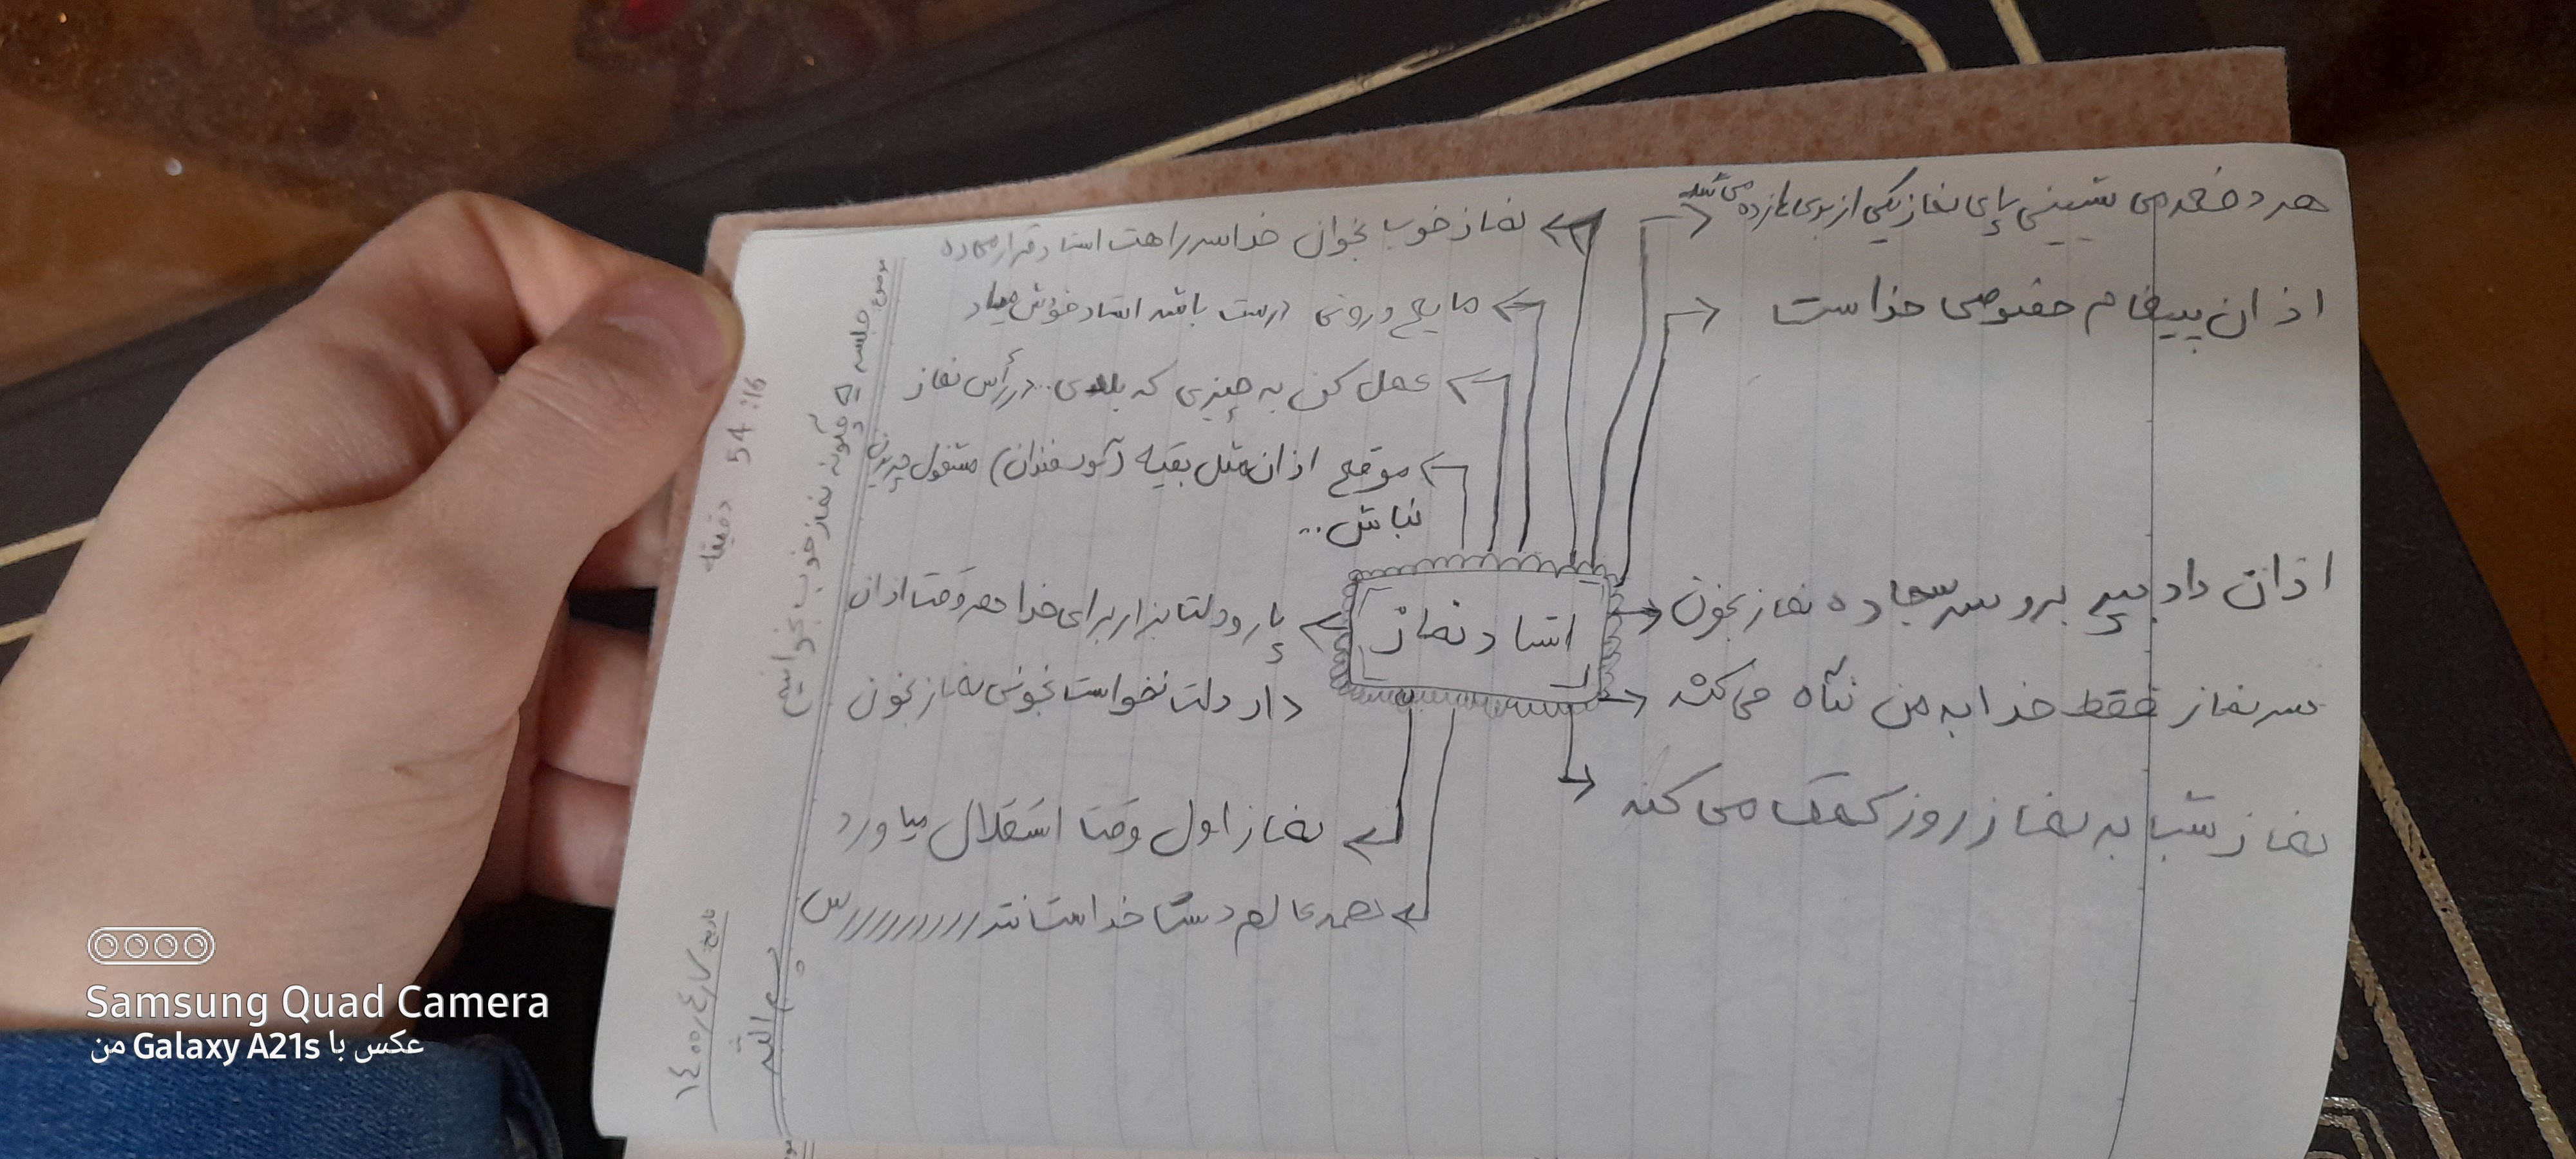 بسم الله
تاریخ ۱۴۰۰/۴/۷
موضوع جلسه چگونه نماز خوب بخوانیم
54:16 دقیقه
استاد نماز
هر دفعه می شینی پای نماز یکی از بدی ها زده می شه
اذان پیغام خصوصی خداست
اذان داد بپر برو سر سجاده نماز بخون
سر نماز فقط خدا به من نگاه می کنه
نماز شب به نماز روز کمک می کنه
نماز خوب بخوان خدا سر راهت استاد قرار میده
مایع درونی درست باشه استاد خودش میاد
عمل کن به چیزی که بلدی .. در رأس نماز
موقع اذان مثل بقیه (گوسفندان) مشغول چریدن
نباش ..
پا رو دلت بزار برای خدا هر وقت اذان
داد دلت نخواست بخونی نماز بخون
نماز اول وقت استقلال میاورد
همه عالم دست خداست نترررررررررس
Samsung Quad Camera
عکس با Galaxy A21s من